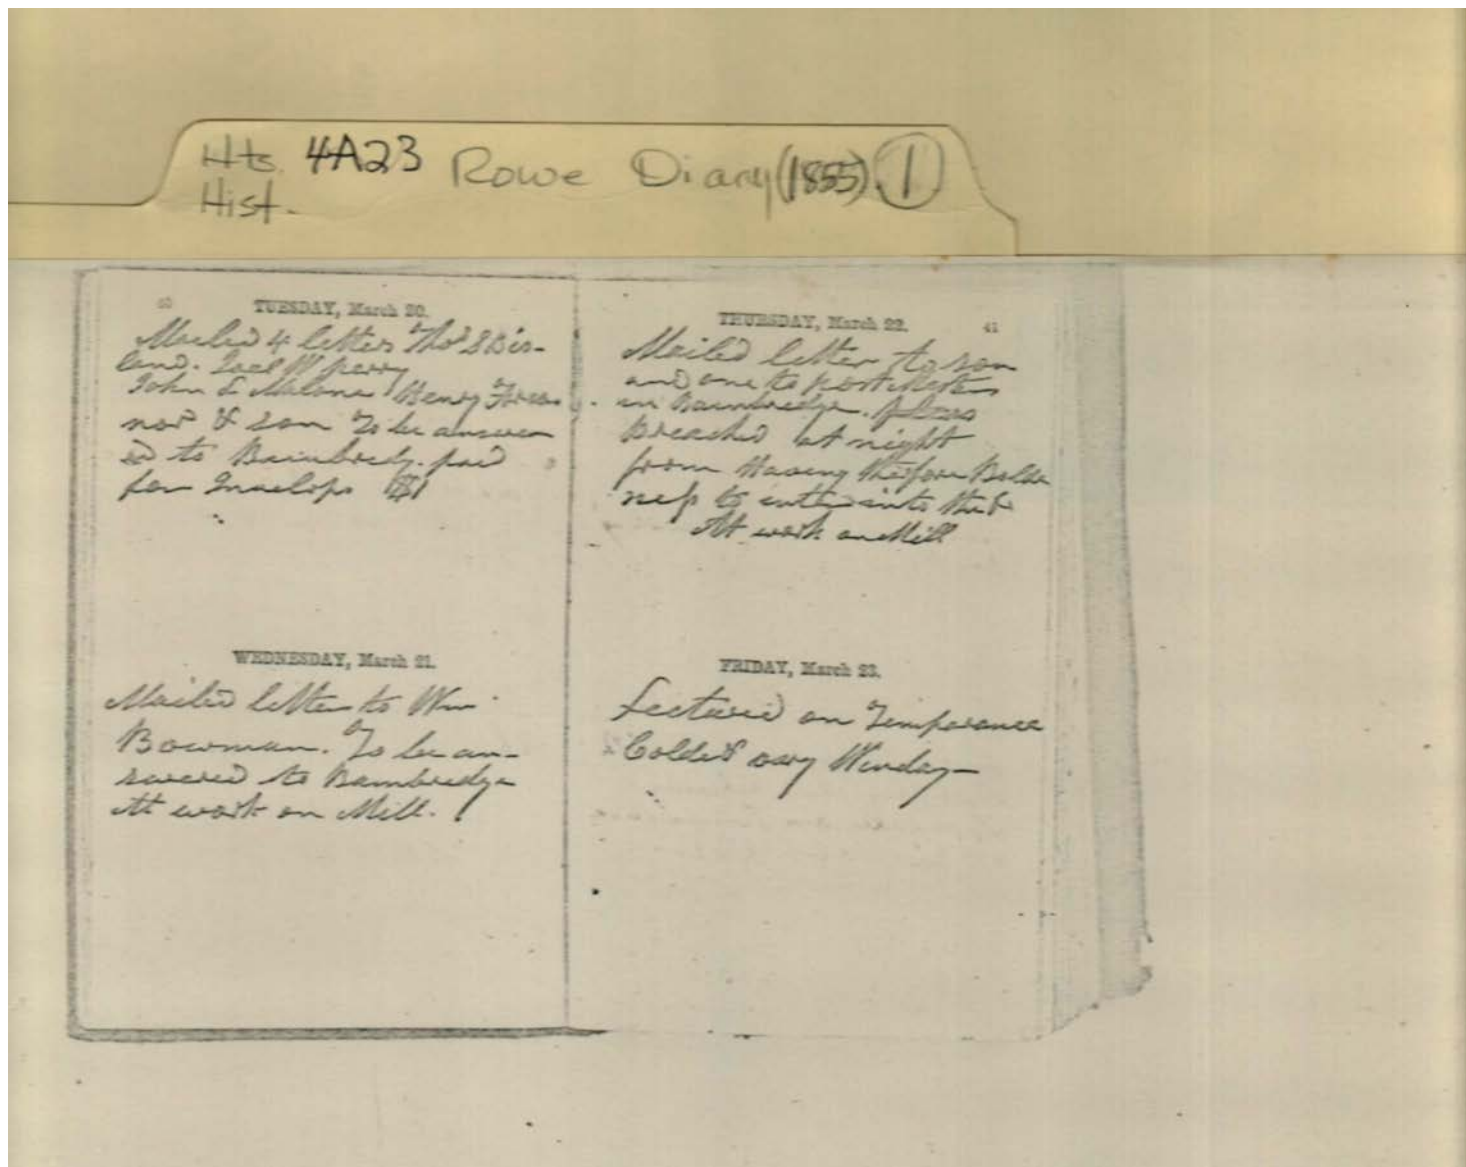 Hts. 4A23 Rowe Diary (1855) 1
Hist.
TUESDAY, March 20.
Mailed 4 letters Thos S Bis-
land. Joel W perry
John E Malone Henry
& son To be answer
ed to Bainbredg. paid
for Invelops $1
WEDNESDAY, March 21.
Mailed letter to Wm
Bowman. To be an-
swered to Bambredge
At work on Mill.
THURSDAY, March 22.
41
Mailed letter to son
and one to post
in Bainbredge.
Preached at night
from Having therfore Bolde
ness to enter into the
At work on Mill
FRIDAY, March 23.
Lectured on Temperance
Cold & vary Winday